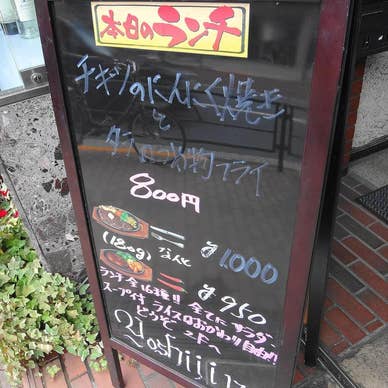 本日のランチ
チキンのにんにく焼き
と
フライ
800円
¥1000
(180g)
¥950
ランチ全16種!! 全てにサラダ
スープ付 ライスはおかわり自由!!
どうぞ 2Fへ